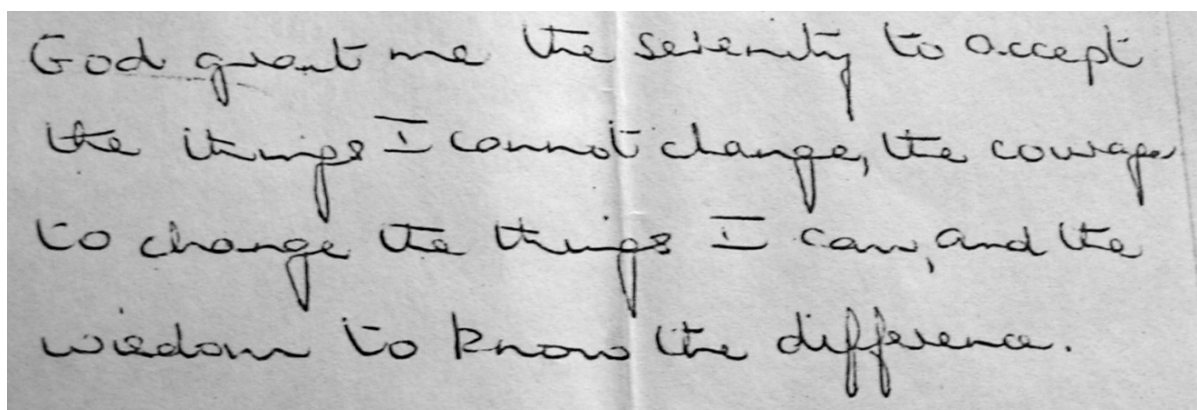 God grant me the serenity to accept
the things I cannot change, the courage
to change the things I can, and the
wisdom to know the difference.